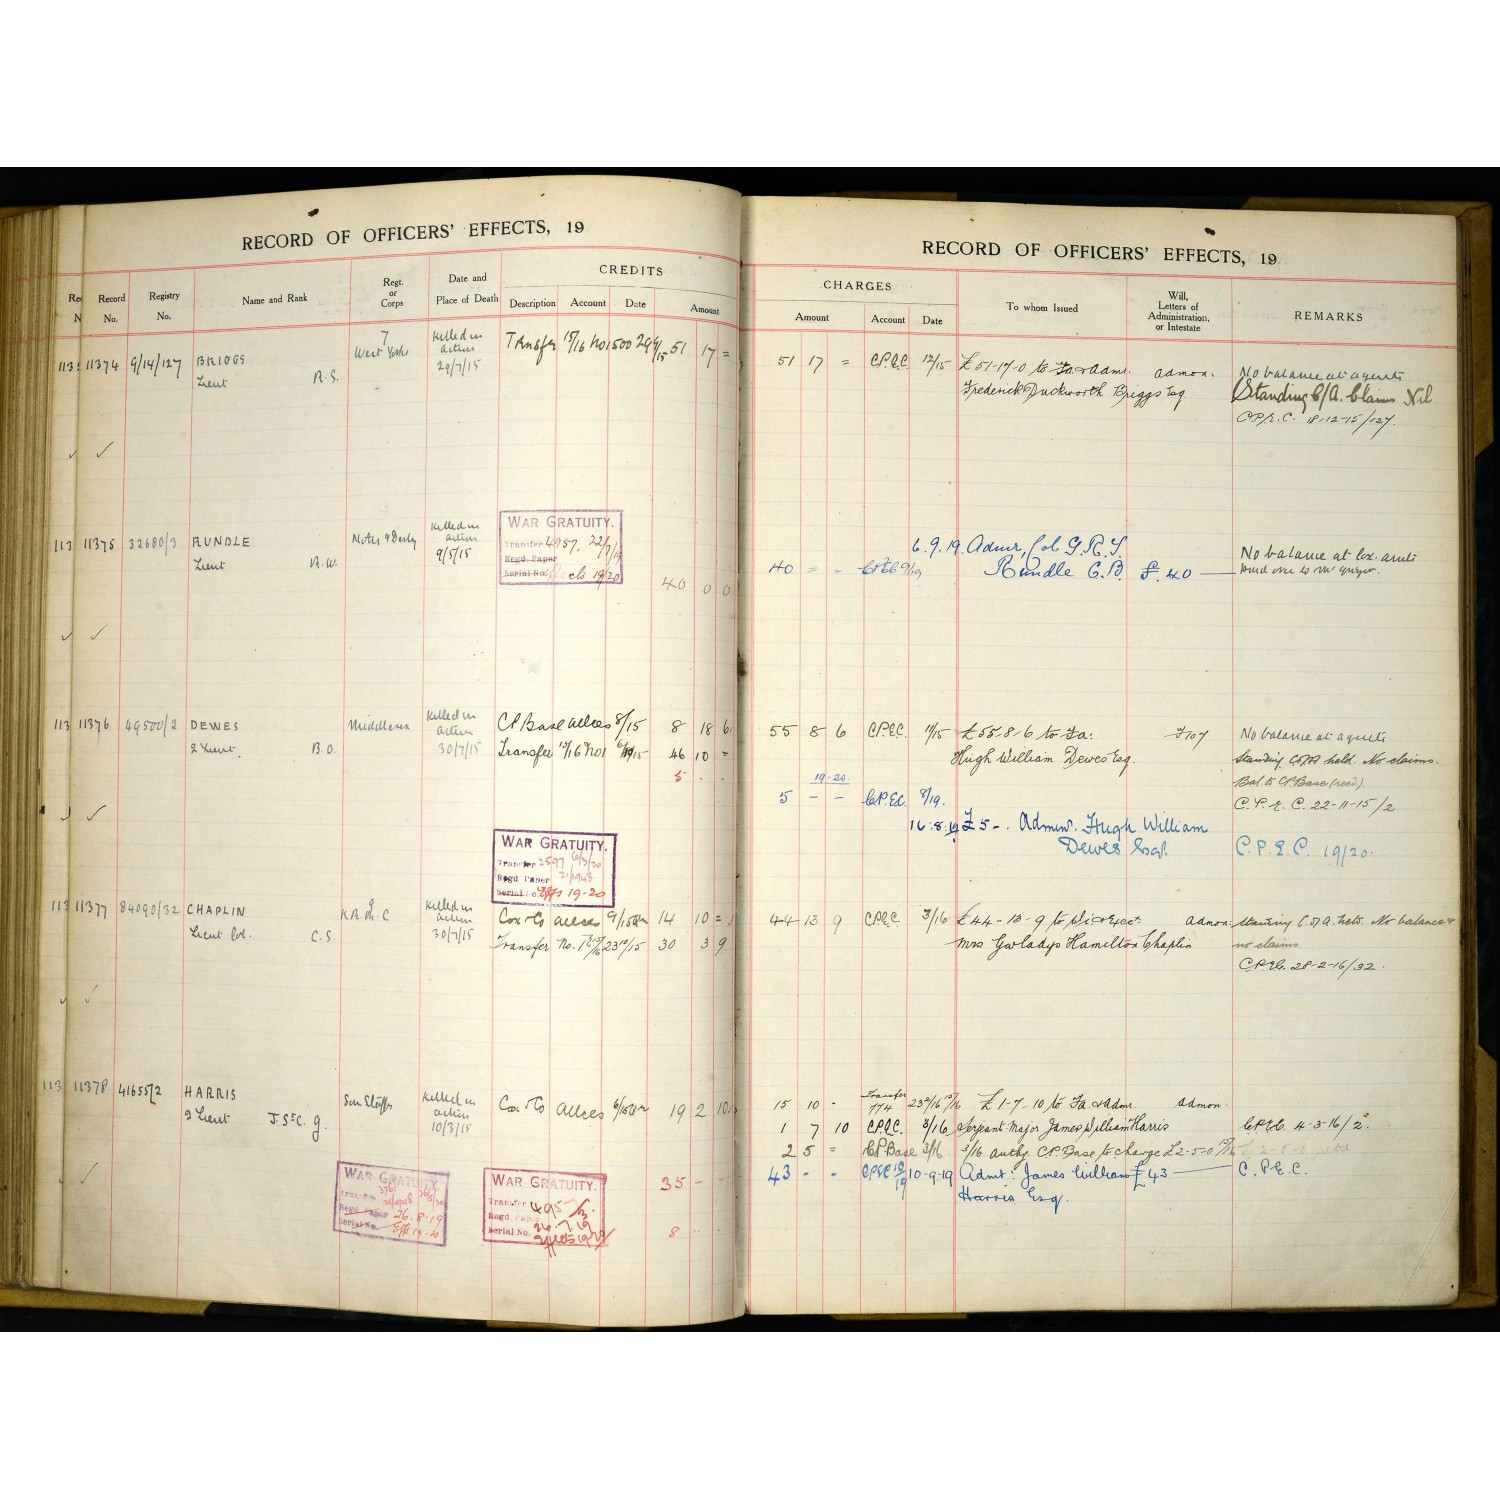 RECORD OF OFFICERS' EFFECTS, 19
Record No. Registry No. Name and Rank Regt. or Corps Date and Place of Death CREDITS Description Account Date Amount
11374 9/14/127 BRIGGS 7 West Yorks Killed in action 29/7/15 Transfer 51 17 =
Lieut R.S.
11375 32680/3 RUNDLE Notts & Derby Killed in action 9/5/15
Lieut R.W.
WAR GRATUITY.
Transfer 4957. 22/7/19
Regd. Paper
Serial No. 19/20
40 0 0
11376 49500/2 DEWES Middlesex Killed in action 30/7/15 CP Base allces 8/15 8 18 6
2 Lieut. B.O. Transfer 46 10 =
5 - -
WAR GRATUITY.
Transfer 2597 6/3/20
Regd Paper
Serial No. Effs 19-20
11377 84090/32 CHAPLIN 9 K.R.R.C Killed in action 30/7/15 Cox & Co allces 14 10 =
Lieut Col. C.S. Transfer No. 1 23 30 3 9
11378 41655/2 HARRIS Sou Staffs Killed in action 10/3/15 Cox & Co allces 19 2 10
2 Lieut J. St C. G.
WAR GRATUITY.
Transfer
Regd Paper 26.8.19
Serial No. Effs 19-20
WAR GRATUITY.
Transfer 495
Regd. Paper 26.7.19
Serial No. Effects 19/20
35 - -
8 - -
RECORD OF OFFICERS' EFFECTS, 19
CHARGES Amount Account Date To whom Issued Will, Letters of Administration, or Intestate REMARKS
51 17 = C.P.E.C. 12/15 £51-17-0 to Fa & Admr. admon. No balance at agents
Frederick Duckworth Briggs Esq Standing C/A. Claims Nil
C.P.E.C. 18-12-15/127.
6.9.19. Admr, Col G.R.T. No balance at Cox. amts
40 = - 9/19 Rundle C.B. £40 — paid over to McGrigor.
55 8 6 C.P.E.C. 11/15 £55.8.6 to Fa: F107 No balance at agents
Hugh William Dewes Esq. Standing held. No claims.
19-20. Bal. to CP Base (recd)
5 - - C.P.E.C. 8/19. C.P.E.C. 22-11-15/2
16.8.19 £5-. Admor. Hugh William
Dewes Esq. C.P.E.C. 19/20.
44 13 9 C.P.E.C. 3/16 £44-13-9 to Wi & Exec: admon: Standing No balance &
Mrs Gwladys Hamilton Chaplin no claims.
C.P.E.C. 28-2-16/32.
15 10 - Transfer 174 £1-7-10 to Fa & Admr. admon.
1 7 10 C.P.E.C. 3/16 Sergeant Major James William Harris C.P.E.C. 4-3-16/2.
2 5 = C.P Base 3/16 3/16 authy. C.P. Base to charge £2-5-0
43 - - C.P.E.C 10/19 10-9-19 Admr: James William £43 — C.P.E.C.
Harris Esq.